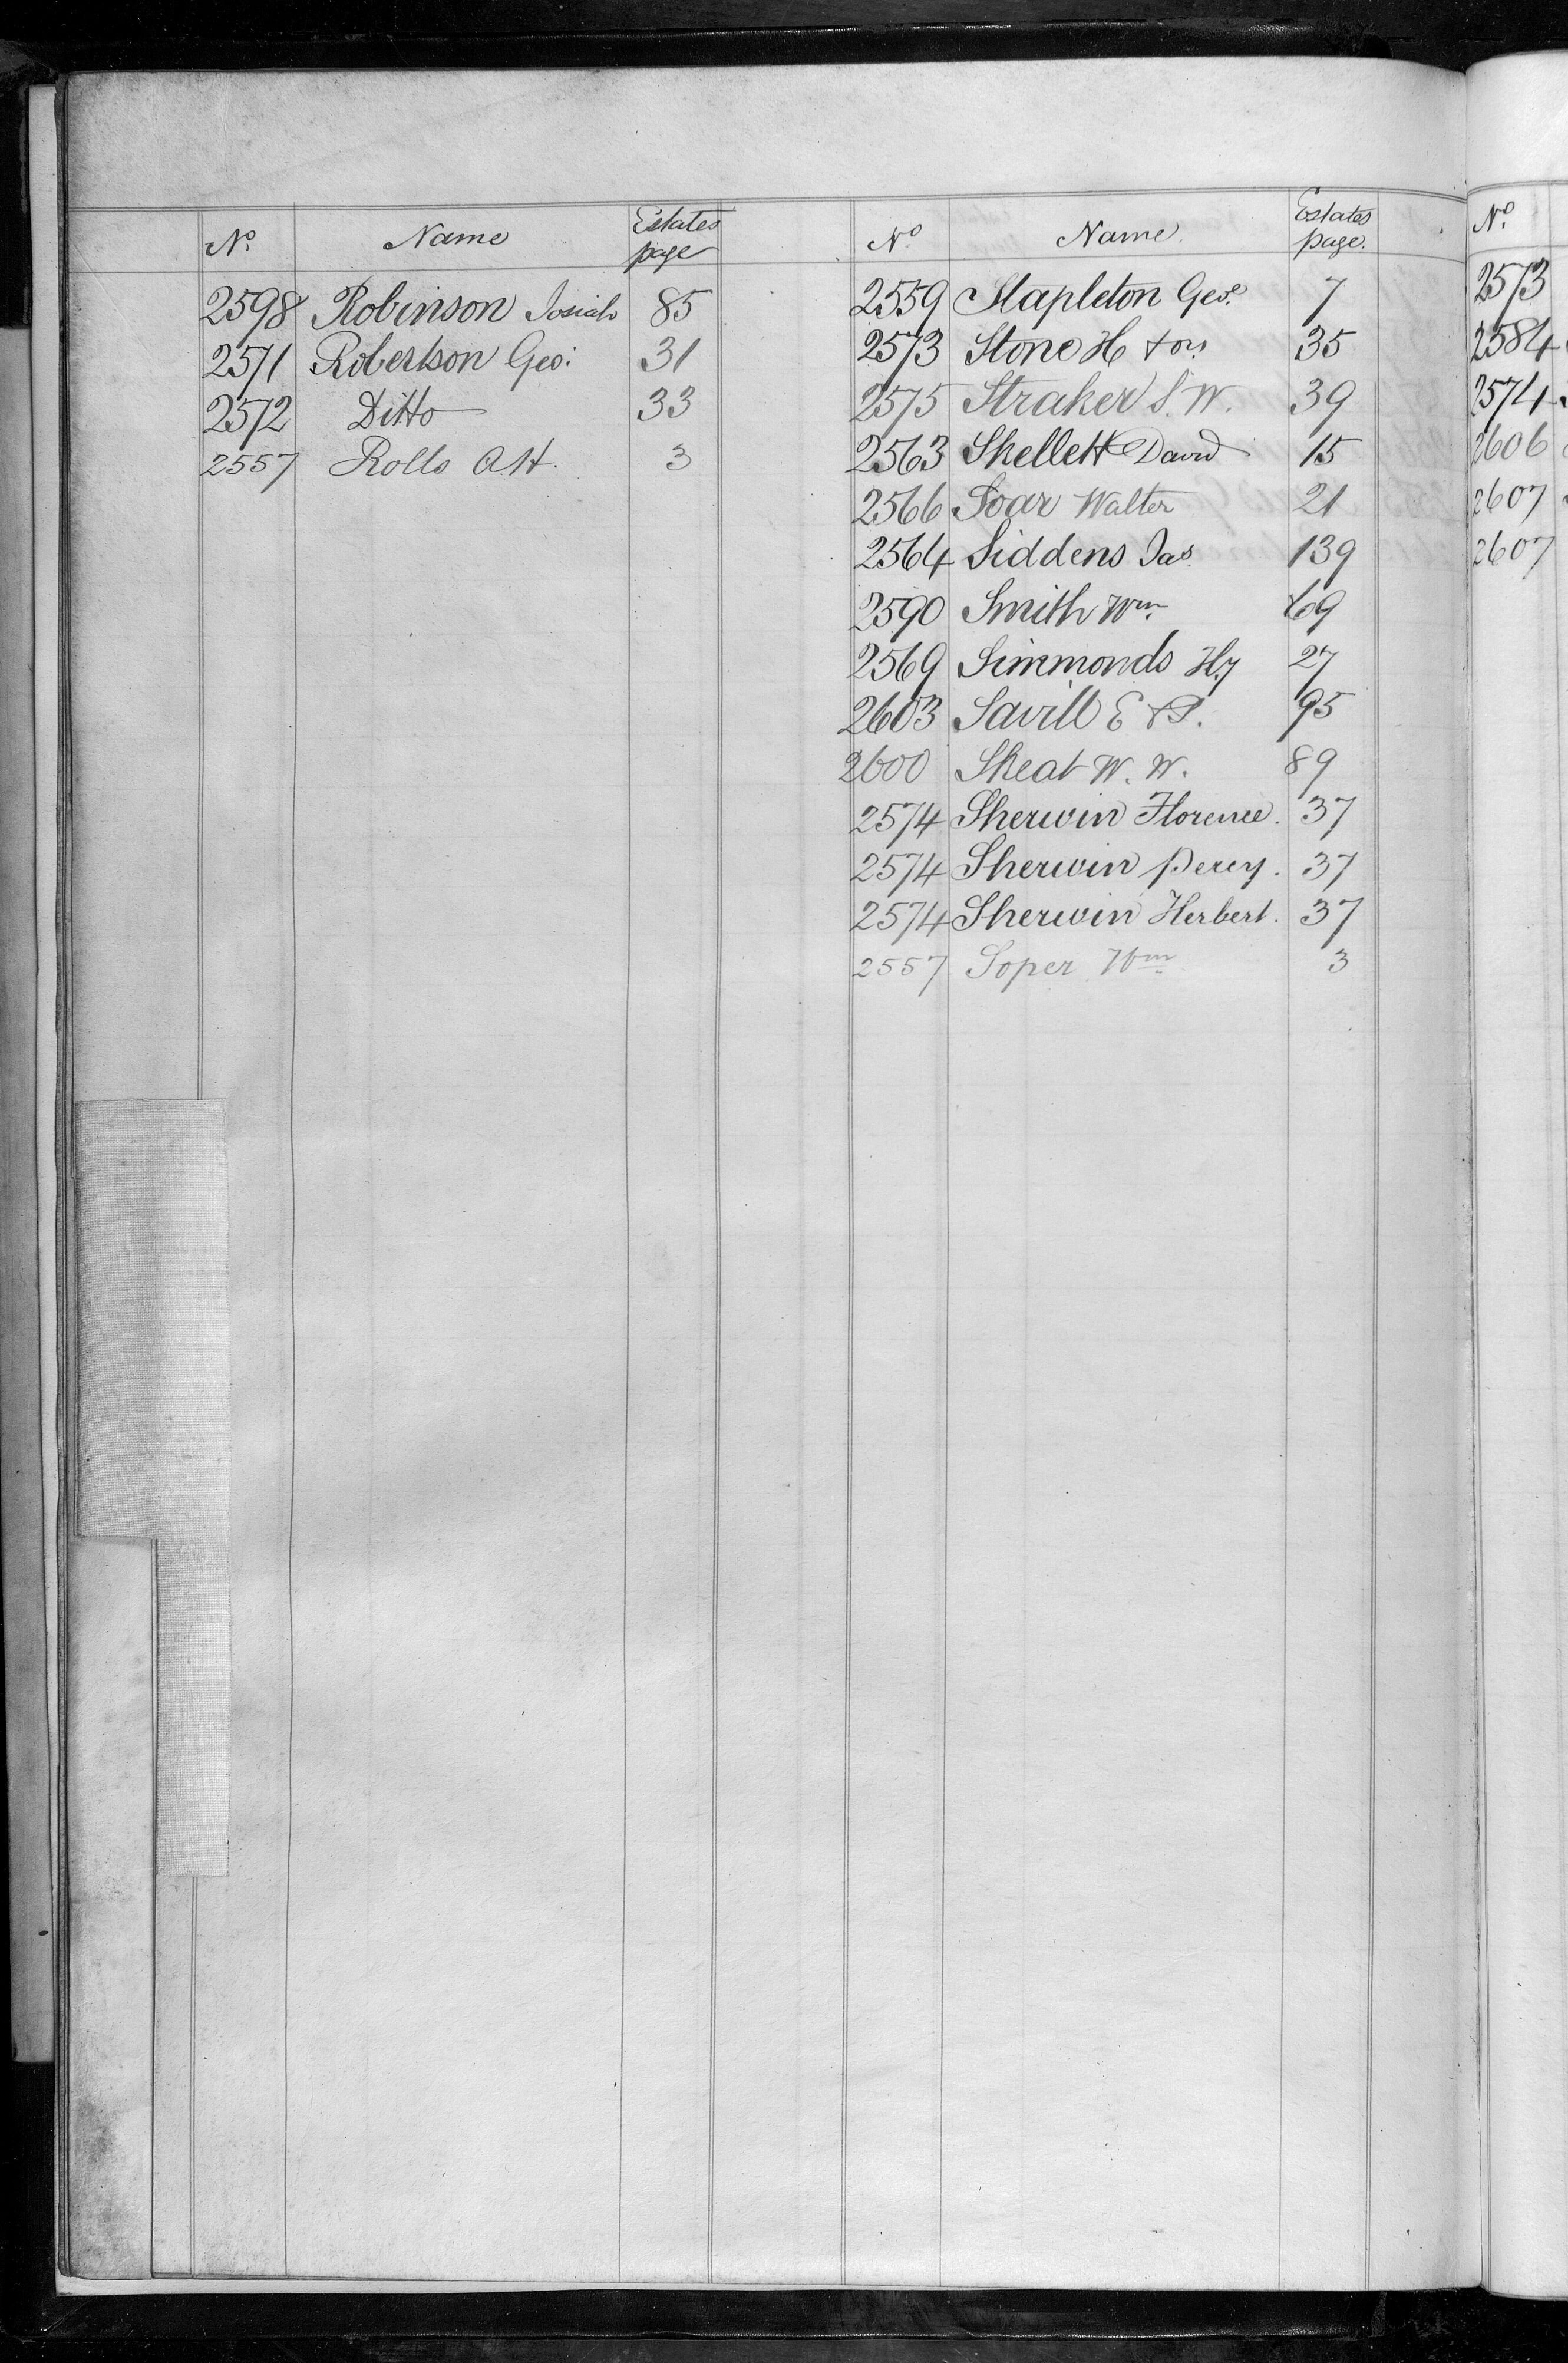 No. Name Estates page
2598 Robinson Josiah 85
2571 Robertson Geo: 31
2572 Ditto 33
2557 Rolls A.H. 3
No. Name. Estates page.
2559 Stapleton Geoe. 7
2573 Stone H & ors 35
2575 Straker S.W. 39
2563 Skellett David 15
2566 Soar Walter 21
2564 Siddens Jas. 139
2590 Smith Wm. 69
2569 Simmonds Hy 27
2603 Savill E & S. 95
2600 Skeat W. W. 89
2574 Sherwin Florence. 37
2574 Sherwin Percy. 37
2574 Sherwin Herbert. 37
2557 Soper Wm 3
No.
2573
2584
2574
2606
2607
2607